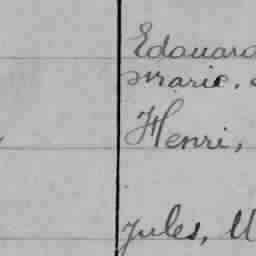 Edouard
Marie.
Henri,
Jules,